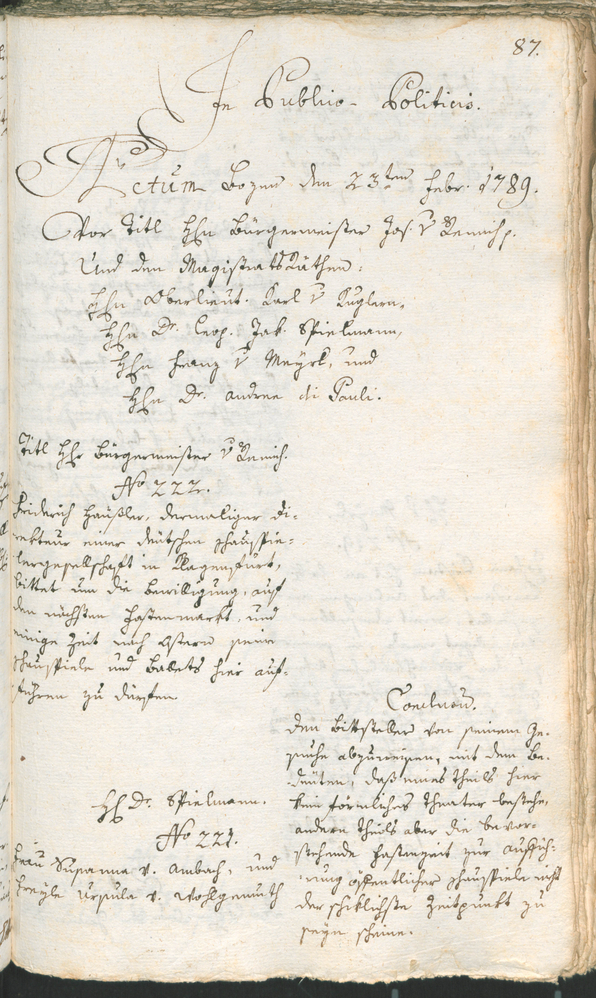 87.
In Publico-Politicis.
Actum Bozen den 23ten Febr. 1789.
Vor Titl Hhn Bürgermeister Jos. v Remich p.
Und den Magistrats Räthen:
Hhn Oberlieut. Karl v Kuglern,
Hhn Dr. Leop. Jak. Spielmann,
Hhn Franz v Mayrl, und
Hhn Dr. Andree di Pauli.
Titl Hhr Bürgermeister v Remich.
No 222.
Friderich Häußler, dermaliger Di-
rekteur einer deütschen Schauspie-
lergesellschaft in Klagenfurt,
bittet um die Bewilligung, auf
den nächsten Fastenmarkt, und
einige Zeit nach Ostern seine
Schauspiele und Ballets hier auf-
führen zu dürfen
Conclusum.
Den Bittsteller von seinem Ge-
suche abzuweisen, mit dem Be-
deüten, daß eines Theils hier
kein förmliches Theater bestehe,
andern Theils aber die bevor-
stehende Fastenzeit zur Auffüh-
rung öffentlicher Schauspiele nicht
der schiklichste Zeitpunkt zu
seyn scheine.
Hh Dr. Spielmann.
No 221.
Frau Susanna v. Ambach, und
Freyle Ursula v. Wohlgemuth